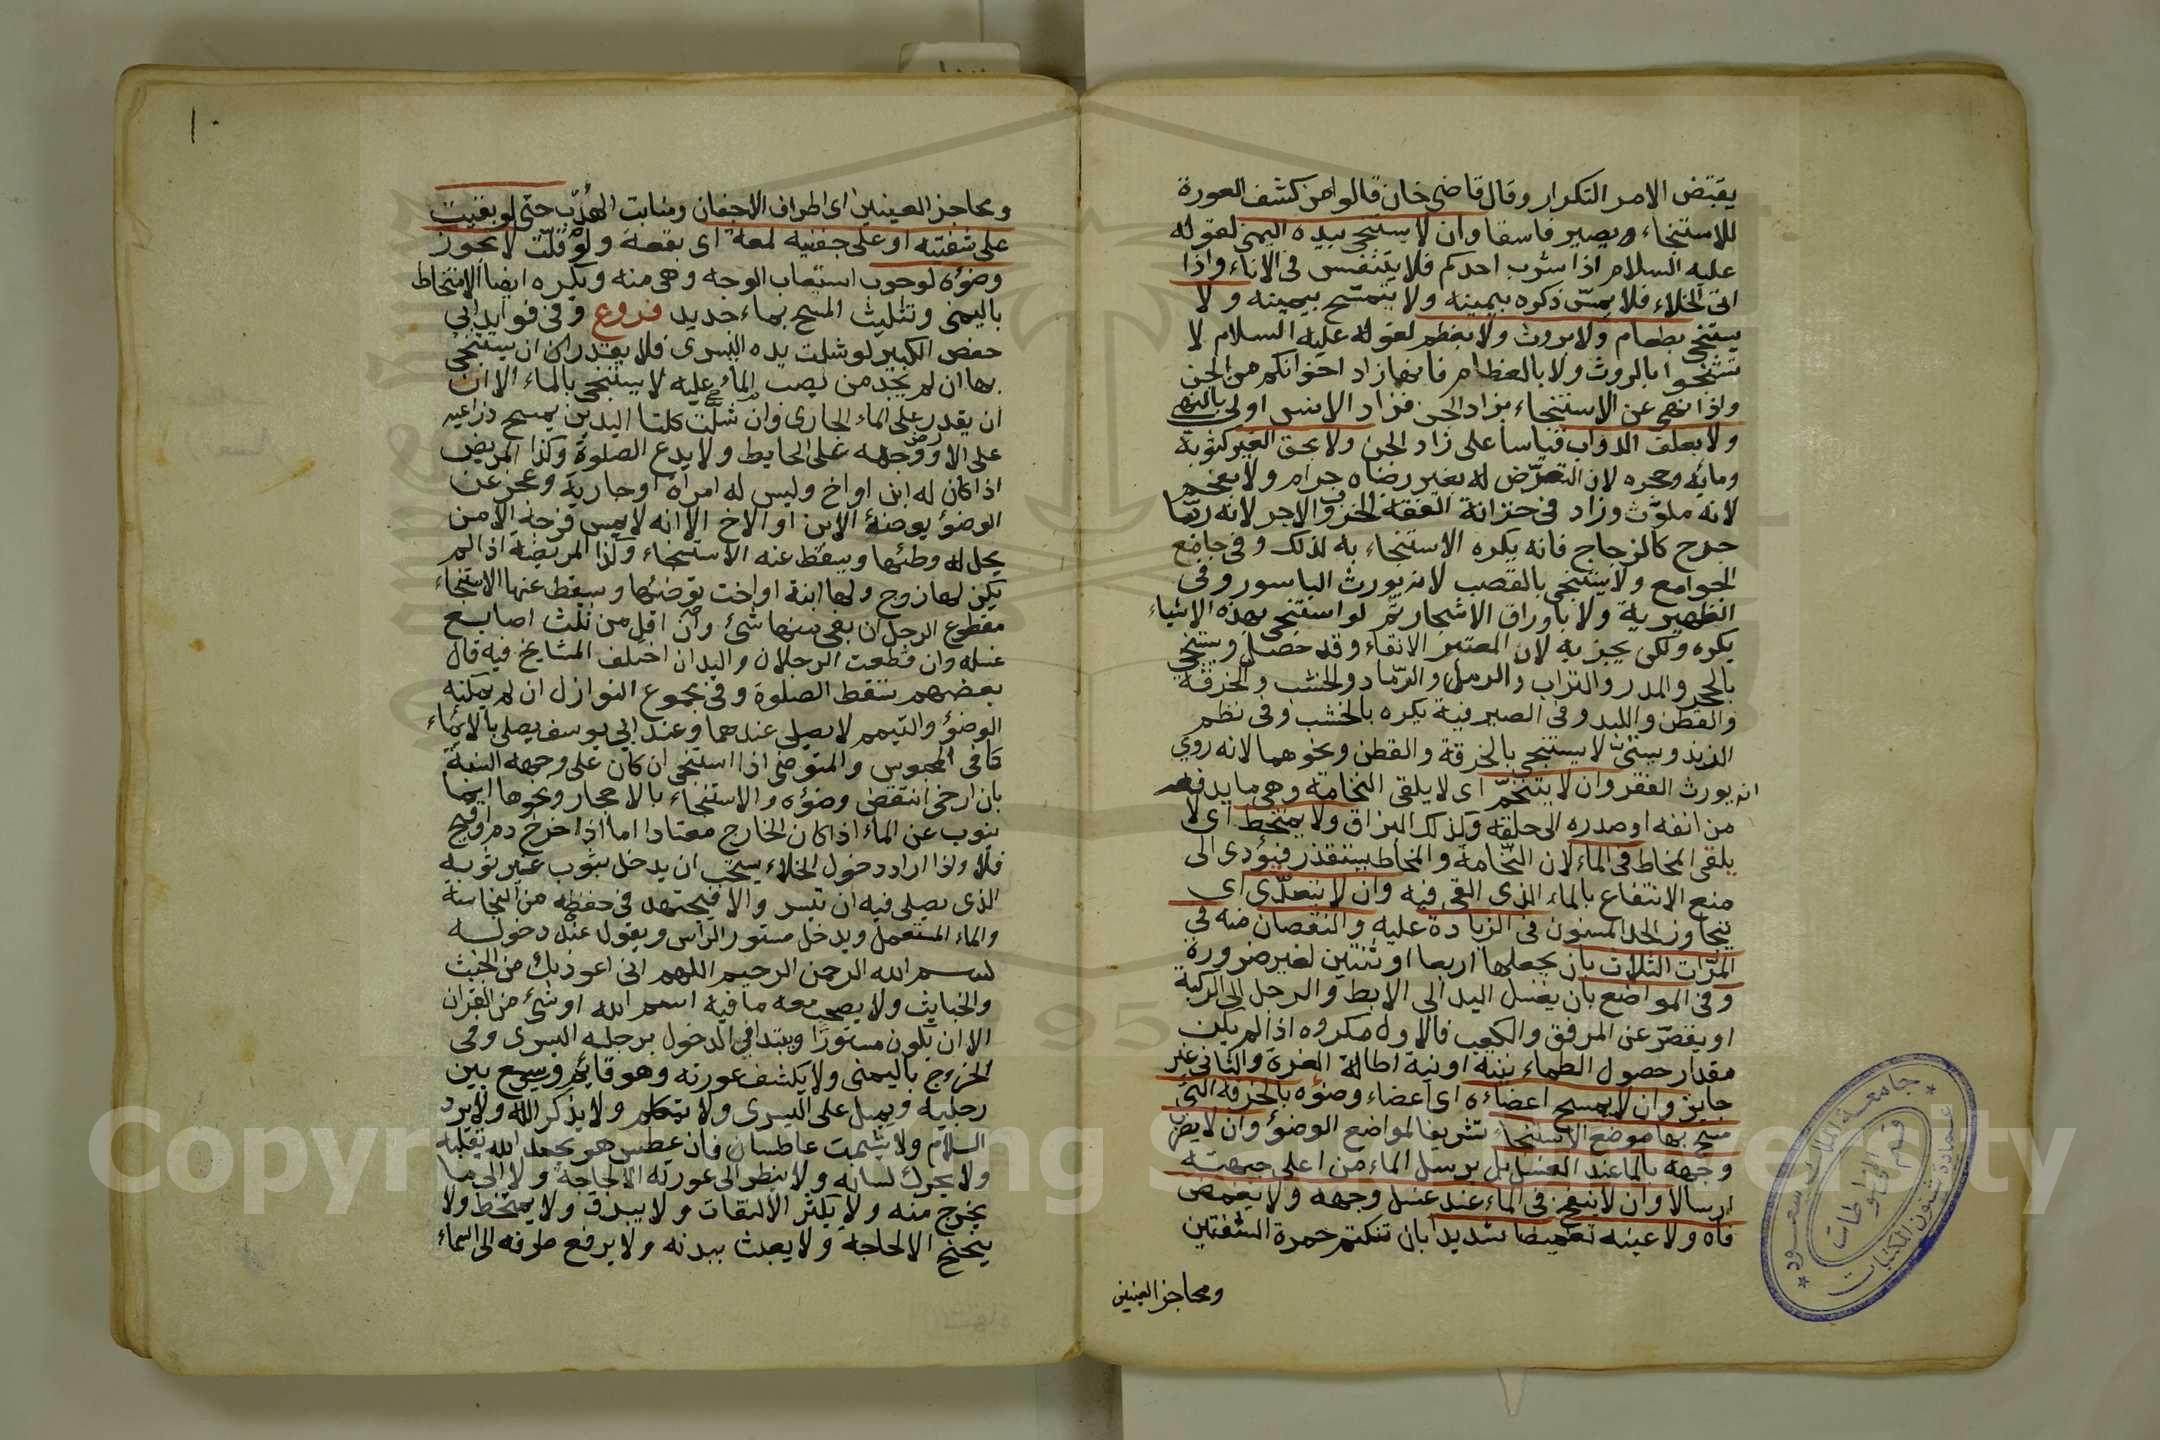 يقتض الامر التكرار وقال قاضى خان قالوا من كشف العورة
للاستنجاء ويصير فاسقا وان لا يستنجى بيده اليمنى لقوله
عليه السلام اذا شرب احدكم فلا يتنفس فى الاناء واذا
اتى الخلاء فلا يمسّ ذكره بيمينه ولا يتمسّح بيمينه ولا
يستنجى بطعام ولا بروث ولا بعظم لقوله عليه السلام لا
تستنجوا بالروث ولا بالعظام فانها زاد اخوانكم من الجن
واذا نهى عن الاستنجاء بزاد الجن فزاد الانس اولى بالنهى
ولا بعلف الدواب قياسا على زاد الجن ولا بحق الغير كثوبه
ومائه وحجره لان التعرّض له بغير رضاه حرام ولا بفحم
لانه ملوّث وزاد فى خزانة الفقه الخزف والاجر لانه ربّما
جرح كالزجاج فانه يكره الاستنجاء به لذلك وفى جامع
الجوامع ولا يستنجى بالقصب لانه يورث الباسور وفى
الظهيرية ولا باوراق الاشجار ثم لو استنجى بهذه الاشياء
يكره ولكن يجزيه لان المعتبر الانقاء وقد حصل ويستنجى
بالحجر والمدر والتراب والرمل والرّماد والخشب والخرقة
والقطن واللبد وفى الصيرفية يكره بالخشب وفى نظم
الزندويستى لا يستنجى بالخرقة والقطن ونحوهما لانه روى
انه يورث الفقر وان لا يتنخّم اى لا يلقى النخامة وهى ما يدفعه
من انفه او صدره الى حلقه وكذلك البزاق ولا يمتخط اى لا
يلقى المخاط فى الماء لان النّخامة والمخاط يستقذر فيؤدى الى
منع الانتفاع بالماء الذى القى فيه وان لا يتعدّى اى
يتجاوز الحد المسنون فى الزيادة عليه والنقصان منه فى
المرّات الثلاث بان يجعلها اربعا او ثنتين لغير ضرورة
وفى المواضع بان يغسل اليد الى الابط والرجل الى الركبة
او يقصّر عن المرفق والكعب فالاول مكروه اذا لم يكن
مقدار حصول الطماء نينه او نية اطالة الغرة والثانى غير
جايز وان لا يمسح اعضاءه اى اعضاء وضوءه بالخرقة التى
مسح بها موضع الاستنجاء تشريفا لمواضع الوضوء وان لا يضرب
وجهه بالماء عند الغسل بل يرسل الماء من اعلى جبهته
ارسالا وان لا ينفخ فى الماء عند غسل وجهه ولا يغمض
فاه ولا عينه تغميضا شديدا بان تنكتم حمرة الشفتين
ومحاجز العينين
١٠
ومحاجز العينين اى اطراف الاجفان ومنابت الهدب حتى لو بقيت
على شفته او على جفنيه لمعة اى بقعة ولو قلّت لا يجوز
وضوءه لوجوب استيعاب الوجه وهى منه ويكره ايضا الامتخاط
باليمنى وتثليث المسح بماء جديد فروع وفى فوايد ابى
حفص الكبير لو شلت يده اليسرى فلا يقدر ان يستنجى
بها ان لم يجد من يصب الماء عليه لا يستنجى بالماء الا ان
ان يقدر على الماء الجارى وان شلّت كلتا اليدين يمسح ذراعيه
على الارض ووجهه على الحايط ولا يدع الصلوة وكذا المريض
اذا كان له ابن او اخ وليس له امراة او جارية وعجز عن
الوضوء يوضئه الابن او الاخ الا انه لا يمس فرجه الا من
يحل له وطئها ويسقط عنه الاستنجاء وكذا المريضة اذا لم
يكن لها زوج ولها ابنة او اخت توضئها وسقط عنها الاستنجاء
مقطوع الرجل ان بقى منها شئ وان اقل من ثلث اصابع
غسله وان قطعت الرجلان واليدان اختلف المشايخ فيه قال
بعضهم تسقط الصلوة وفى مجموع النوازل ان لم يمكنه
الوضوء والتيمم لا يصلى عندهما وعند ابى يوسف يصلى بالايماء
كما فى المحبوس والمتوضى اذا استنجى ان كان على وجه السنة
بان ارخى انتقض وضوءه والاستنجاء بالاحجار ونحوها ايما
ينوب عن الماء اذا كان الخارج معتادا اما اذا خرج دم او قيح
فلا واذا اراد دخول الخلاء يستحب ان يدخل بثوب غير ثوبه
الذى يصلى فيه ان تيسر والا فيجتهد فى حفظه من النجاسة
والماء المستعمل ويدخل مستور الراس ويقول عند دخوله
بسم الله الرحمن الرحيم اللهم انى اعوذ بك من الخبث
والخبايث ولا يصحب معه ما فيه اسم الله او شئ من القران
الا ان يكون مستورا ويبتدا فى الدخول برجله اليسرى وفى
الخروج باليمنى ولا يكشف عورته وهو قايم ويوسع بين
رجليه ويميل على اليسرى ولا يتكلم ولا يذكر الله ولا يرد
السلام ولا يشمت عاطسا فان عطس هو يحمد الله بقلبه
ولا يحرك لسانه ولا ينظر الى عورته الا لحاجة ولا الى ما
يخرج منه ولا يكثر الالتفات ولا يبزق ولا يمتخط ولا
يتنحنح الا لحاجة ولا يعبث ببدنه ولا يرفع طرفه الى السماء
جامعة الملك سعود
عمادة شئون المكتبات
قسم المخطوطات
Copyright © King Saud University